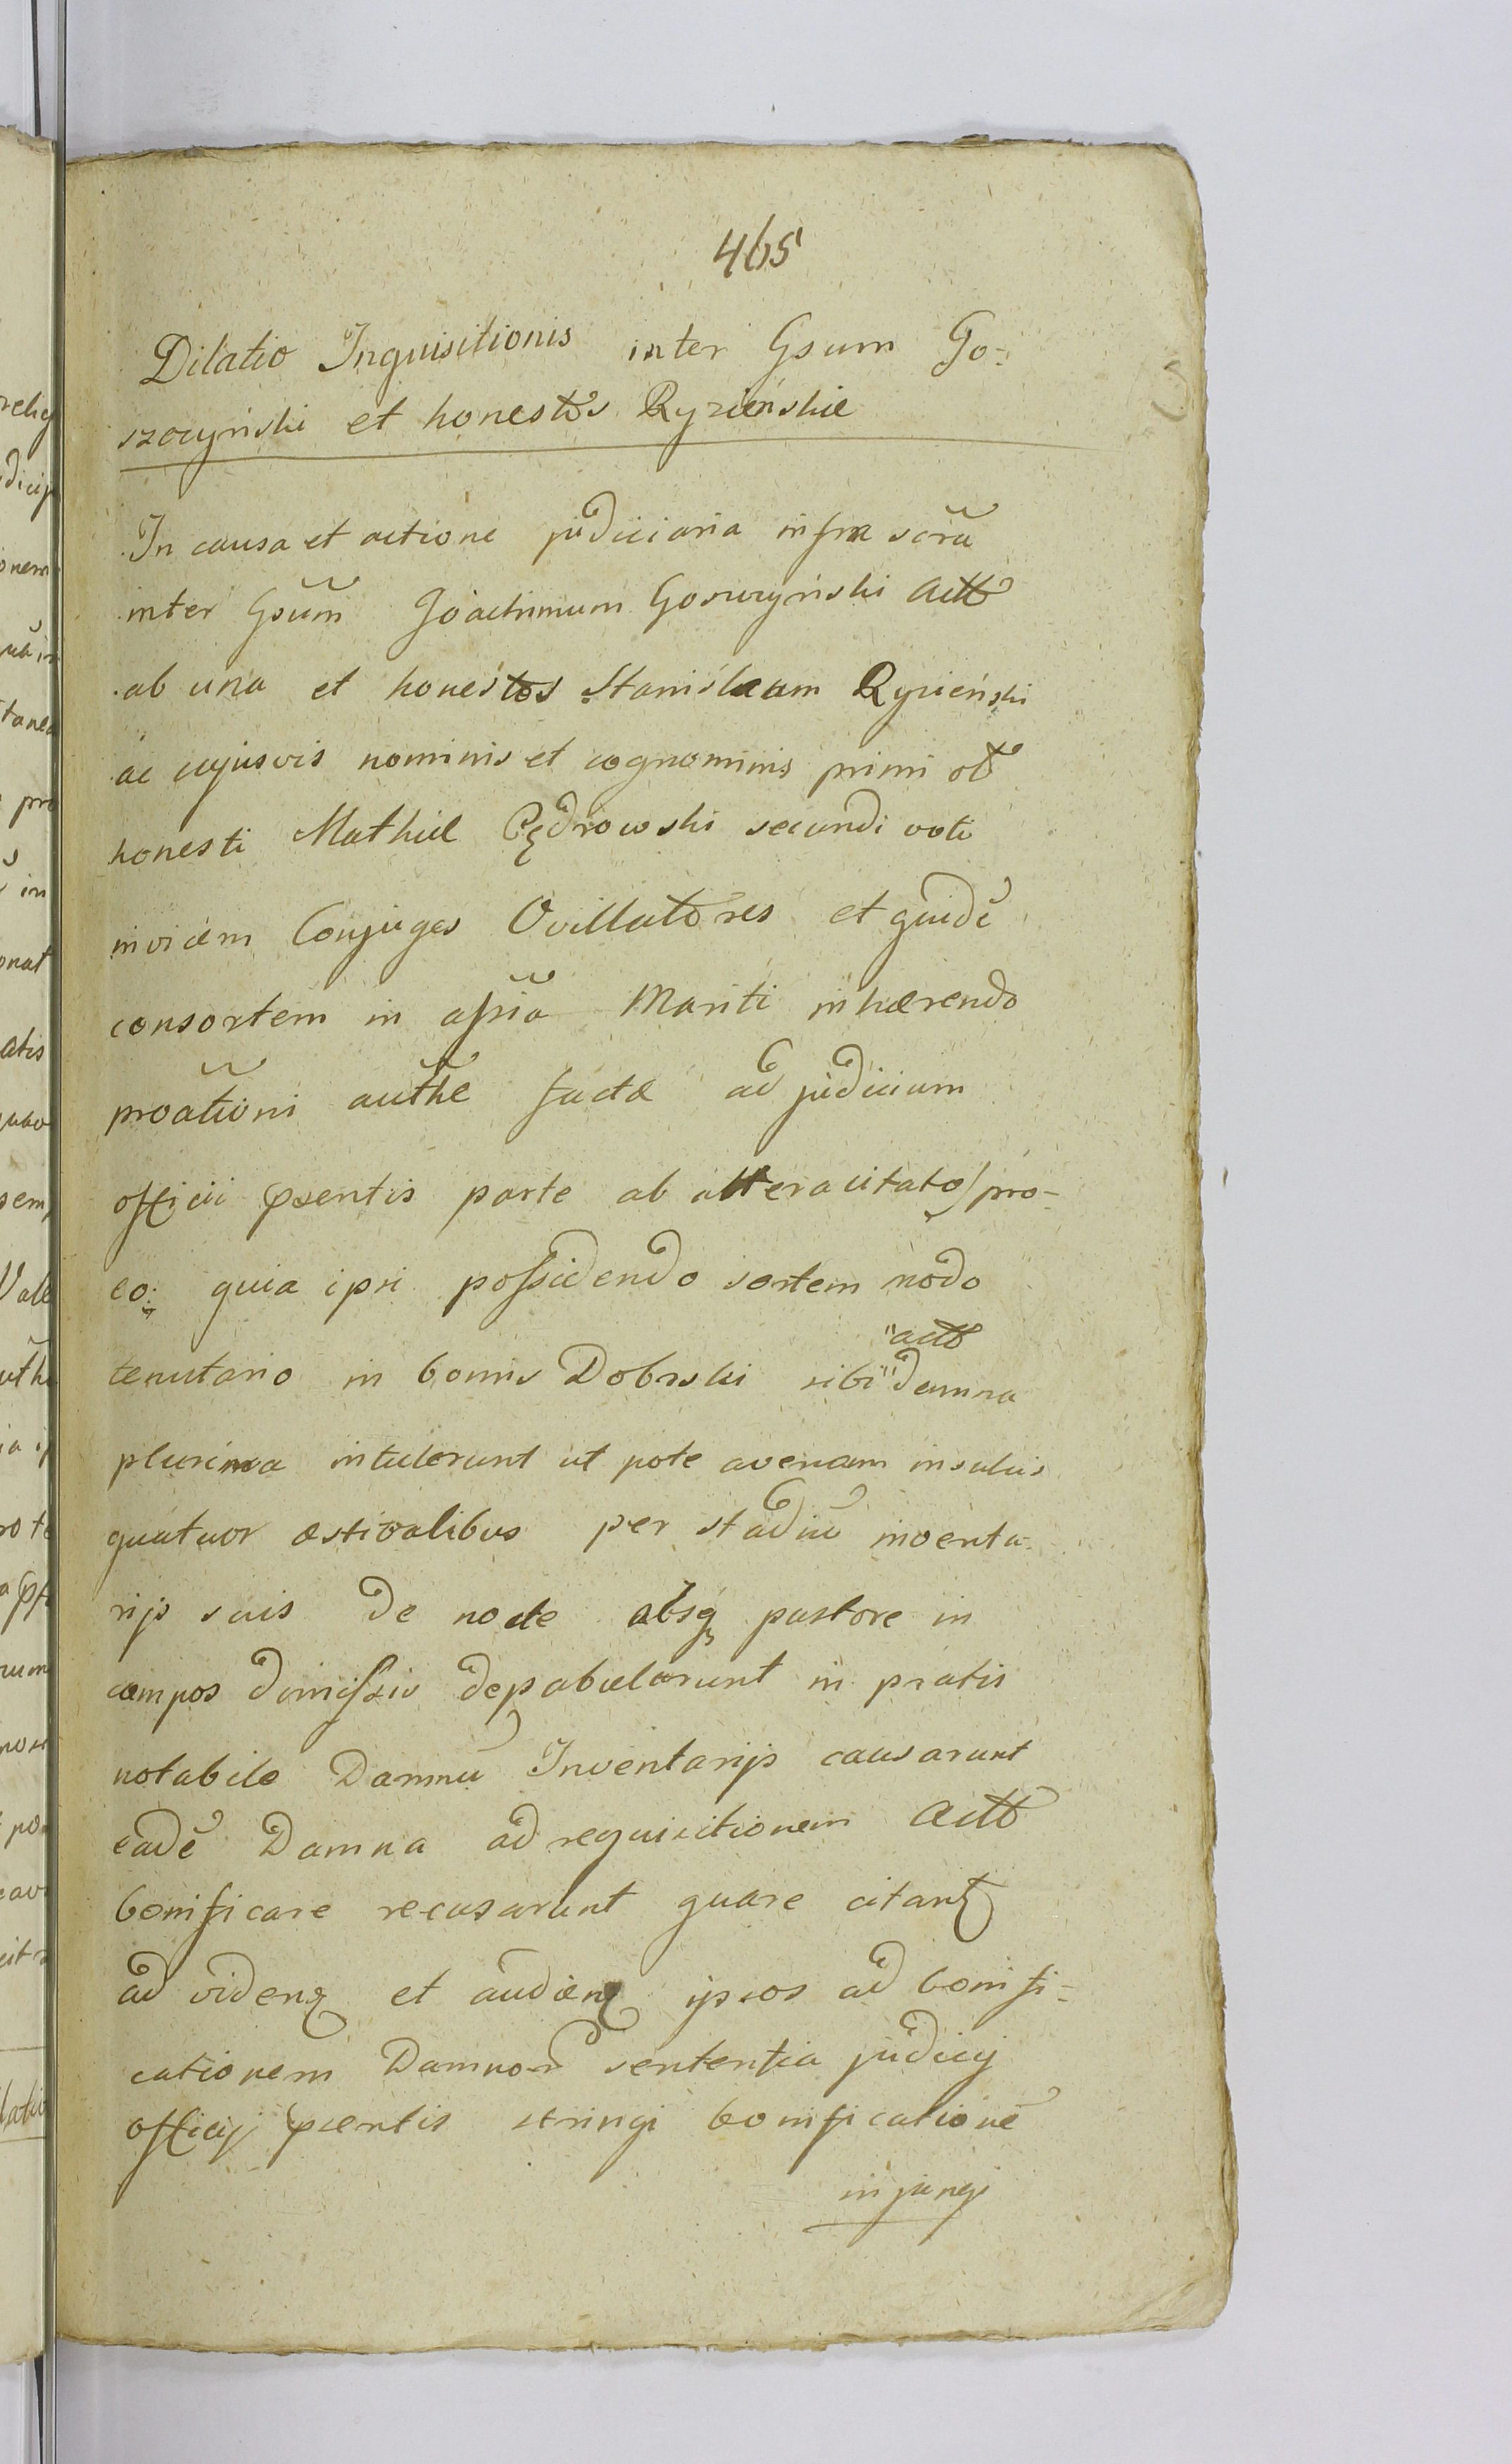 465
Dilatio Inquisitionis inter Gsum Go-
szczyński et honestos Ryzieńskie
In causa et actione judiciaria infra scra
inter Gsum Joachimum Goszczyński Actt
ab una et honestos Stanislaum Ryzieński
ac cujusvis nominis et cognominis primi ott
honesti Mathiæ Pędrowski secundi voti
invicem Conjuges Ovillatores et quidē
consortem in assia Mariti inhærendo
proationi authe factæ ad judicium
officii psentis parte ab altera citato/ pro-
eo: quia ipsi possidendo sortem modo
tenutario in bonis Dobrski sibi "actt" damna
plurima intulerunt ut pote avenam in sulcis
quatuor æstivalibus per stadiū inventa-
rijs suis de nocte absq pastore in
campos dimissis depabularunt in pratis
notabile Damnū Inventarijs causarunt
eadē Damna ad requisitionem Actt
bonificare recusarunt quare citant
ad videnq et audienq ipsos ad bonifi-
cationem Damnor sententia judicij
officij psentis stringi bonificationē
injungi